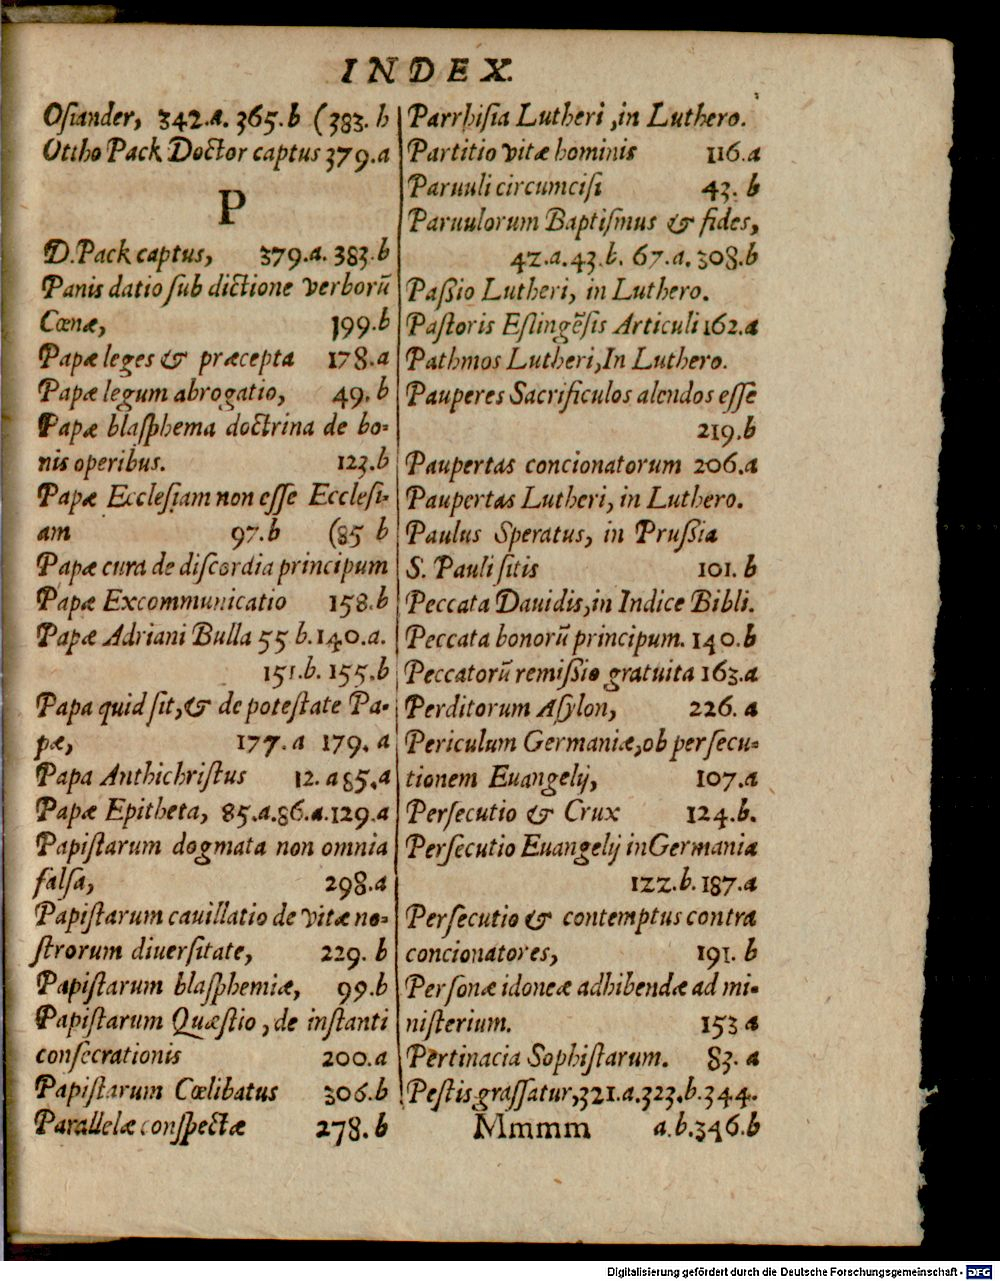 INDEX.
Osiander, 342.a. 365.b (383. b
Ottho Pack Doctor captus 379.a
P
D. Pack captus, 379.a. 383.b
Panis datio sub dictione verborū
Cœnæ, 199.b
Papæ leges & præcepta 178.a
Papæ legum abrogatio, 49. b
Papæ blasphema doctrina de bo-
nis operibus. 123.b
Papæ Ecclesiam non esse Ecclesi-
am 97.b (85 b
Papæ cura de discordia principum
Papæ Excommunicatio 158.b
Papæ Adriani Bulla 55 b. 140.a.
151.b. 155.b
Papa quid sit, & de potestate Pa-
pæ, 177.a 179. a
Papa Anthichristus 12. a 85.a
Papæ Epitheta, 85.a.86.a.129.a
Papistarum dogmata non omnia
falsa, 298.a
Papistarum cauillatio de vitæ no-
strorum diuersitate, 229. b
Papistarum blasphemiæ, 99.b
Papistarum Quæstio, de instanti
consecrationis 200.a
Papistarum Cœlibatus 306.b
Parallelæ conspectæ 278. b
Parrhisia Lutheri, in Luthero.
Partitio vitæ hominis 116.a
Paruuli circumcisi 43. b
Paruulorum Baptismus & fides,
42.a.43.b. 67.a. 308.b
Paßio Lutheri, in Luthero.
Pastoris Eslingēsis Articuli 162.a
Pathmos Lutheri, In Luthero.
Pauperes Sacrificulos alendos esse
219.b
Paupertas concionatorum 206.a
Paupertas Lutheri, in Luthero.
Paulus Speratus, in Prußia
S. Pauli sitis 101. b
Peccata Dauidis, in Indice Bibli.
Peccata bonorū principum. 140.b
Peccatorū remißio gratuita 163.a
Perditorum Asylon, 226. a
Periculum Germaniæ, ob persecu-
tionem Euangelij, 107.a
Persecutio & Crux 124.b.
Persecutio Euangelij in Germania
122.b. 187.a
Persecutio & contemptus contra
concionatores, 191. b
Personæ idoneæ adhibendæ ad mi-
nisterium. 153 a
Pertinacia Sophistarum. 83. a
Pestis grassatur, 321.a.323.b.344.
Mmmm a.b.346.b
Digitalisierung gefördert durch die Deutsche Forschungsgemeinschaft - DFG